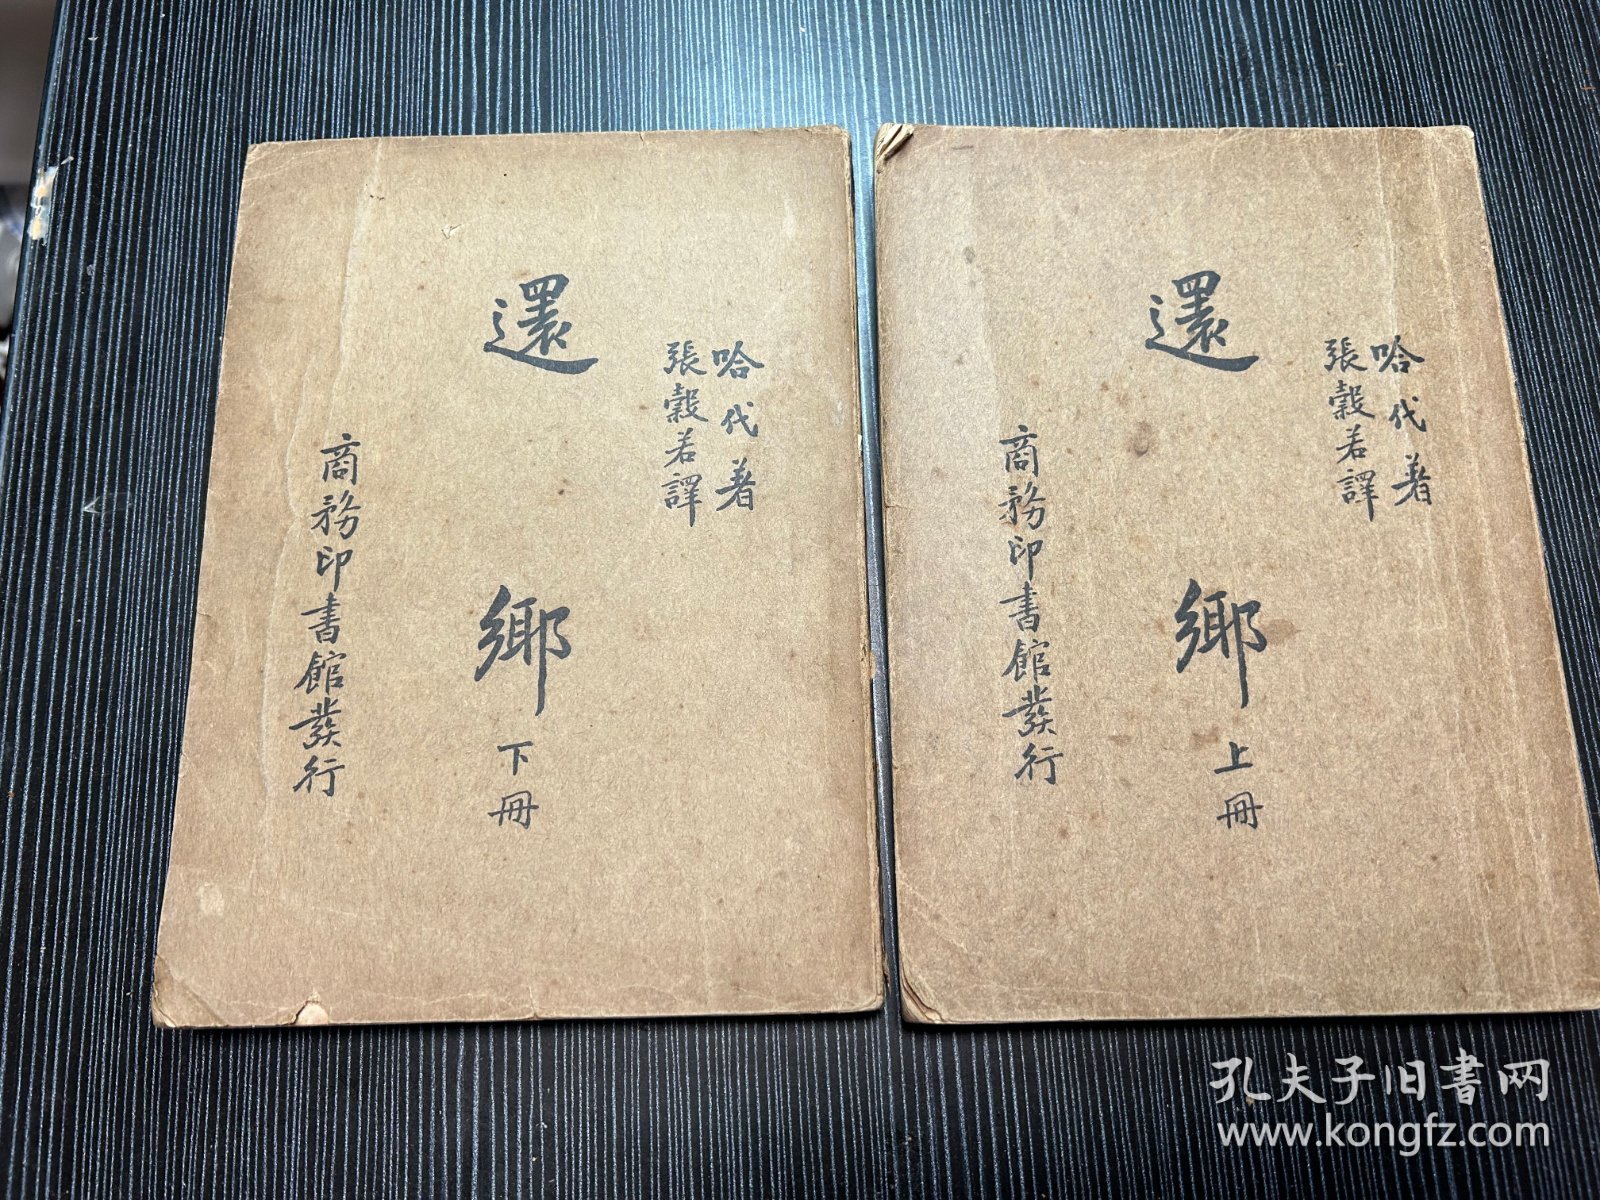 哈代著
張穀若譯
還鄉
上冊
商務印書館發行
哈代著
張穀若譯
還鄉
下冊
商務印書館發行
孔夫子旧书网
www.kongfz.com